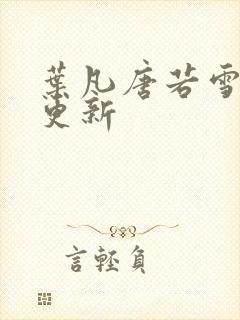 葉凡唐若雪
更新
言輕負